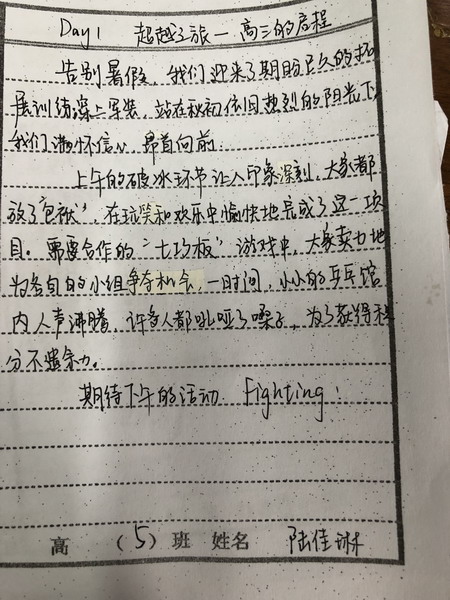 Day 1 超越之旅—高三的启程
告别暑假，我们迎来了期盼已久的拓
展训练。深上军装，站在秋初依旧热烈的阳光下
我们满怀信心，昂首向前。
上午的破冰环节让人印象深刻，大家都
放了"包袱"，在玩笑和欢乐中愉快地完成了这一项
目。需要合作的"七巧板"游戏中，大家卖力地
为各自的小组争夺机会，一时间，小小的乒乓馆
内人声沸腾，许多人都吼哑了嗓子，为了获得积
分不遗余力。
期待下午的活动. Fighting!
高 （5）班 姓名 陆佳琳